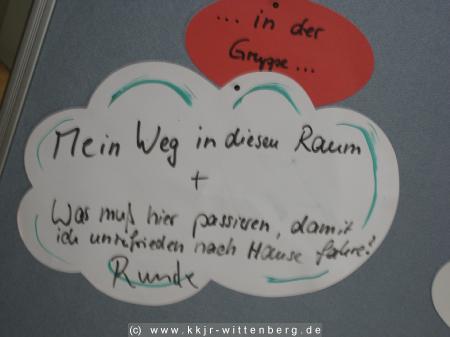 ... in der
Gruppe...
Mein Weg in diesen Raum
+
Was muß hier passieren, damit
ich unzufrieden nach Hause fahre?
Runde
(c) www.kkjr-wittenberg.de